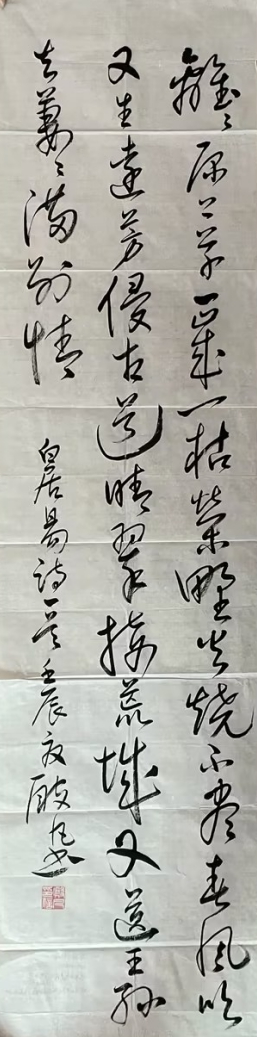 離〻原上草一歲一枯榮野火燒不盡春風吹
又生遠芳侵古道晴翠接荒城又送王孫
去萋〻滿別情
白居易詩一首壬辰夜